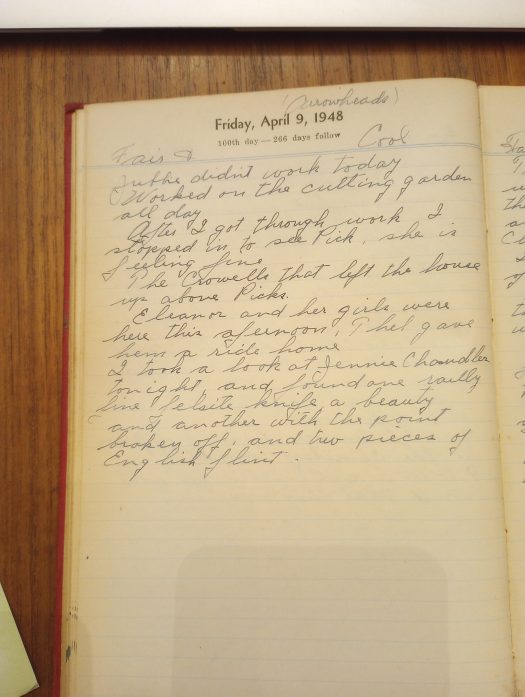 (Arrowheads)
Friday, April 9, 1948
100th day—266 days follow
Fair & Cool
didn't work today
Worked on the cutting garden
all day
After I got through work I
stopped in to see Pick, she is
feeling fine
The Crowells that left the house
up above Picks.
Eleanor and her girls were
here this afernoon, Thel gave
hem a ride home
I took a look at Jennie Chandler
tonight, and found one really
fine felsite knife a beauty
and another with the point
brokey off, and two pieces of
English flint.